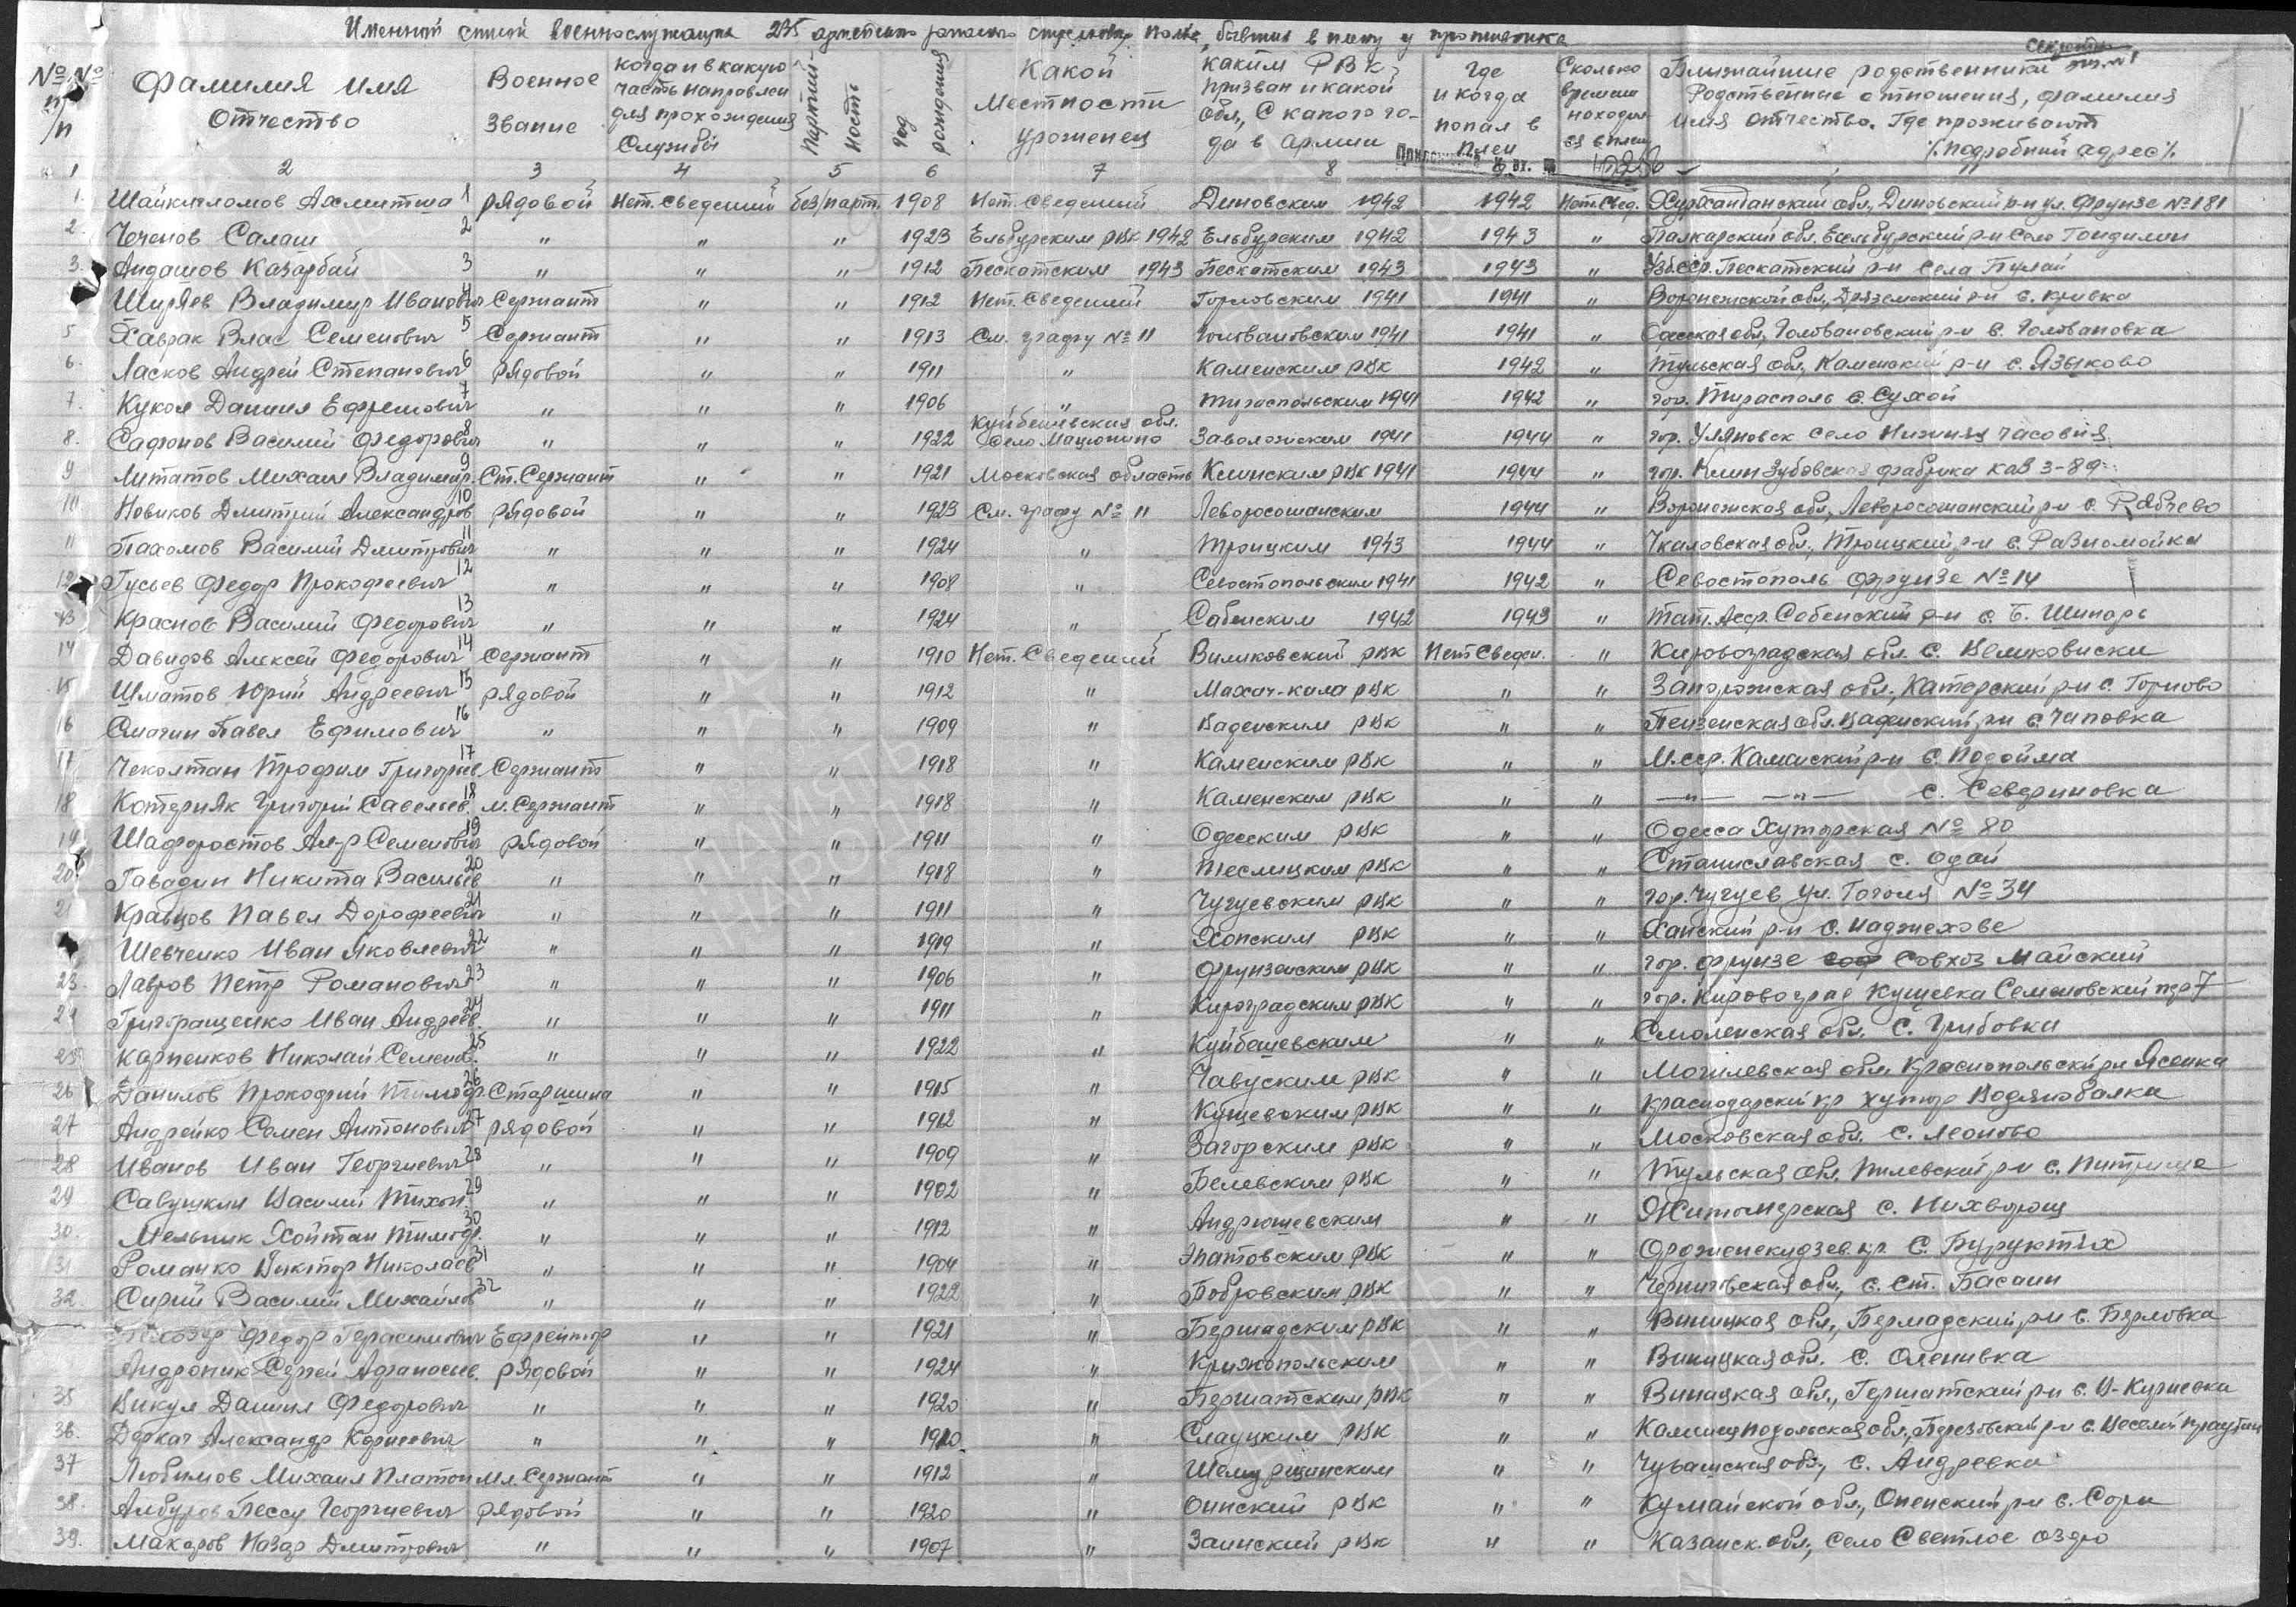 Именной список военнослужащих 235 армейского запасного стрелкового полка, бывших в плену у противника
Секретно
№№ п/п
Фамилия Имя Отчество
Военное звание
когда и в какую часть направлен для прохождения службы
Партийность
Год рождения
Какой местности уроженец
каким РВК призван и какой обл., с какого года в армии
Где и когда попал в плен
Сколько времени находился в плену
Ближайшие родственники Родственные отношения, фамилия имя отчество. Где проживают /подробный адрес/.
1 2 3 4 5 6 7 8
1. Ахмитша 1 рядовой Нет. сведений без/парт. 1908 Нет. сведений Диновским 1942 1942 Нет. свед. обл., Диновский р-н ул. Фрунзе №181
2. Чеченов Салаш 2 " " " 1923 Ельбурским РВК 1942 Ельбурским 1942 1943 " обл. Ельбурский р-н село
3. Андашов Казарбай 3 " " " 1912 Пескатским 1943 Пескатским 1943 1943 " Узб.ССР. Пескатский р-н села Пулай
Ширяев Владимир Иванович 4 Сержант " " 1912 Нет. сведений Горловским 1941 1941 " Воронежской обл., р-н с. Кривка
5 Хаврак Влас Семенович 5 Сержант " " 1913 См. графу №11 Головановским 1941 1941 " Одесская обл, Головановский р-н с. Головановка
6. Ласков Андрей Степанович 6 рядовой " " 1911 " Каменским РВК 1942 " Тульская обл., Каменский р-н с. Языково
7. Кукол Даниил Ефремович 7 " " " 1906 " Тираспольским 1941 1942 " гор. Тирасполь с. Сухой
8. Сафонов Василий Федорович 8 " " " 1922 Куйбешевская обл. село Мацюнино Заволожским 1941 1944 " гор. Уляновск село Нижняя часовня
9 Литатов Михаил Владимир. 9 Ст. Сержант " " 1921 Московская область Клинским РВК 1941 1944 " гор. Клин Зубовская фабрика каз 3-89
10. Новиков Дмитрий Александров 10 рядовой " " 1923 См. графу №11 Леворосошанским 1944 " Воронежская обл., Леворосошанский р-н с. Рябчево
11 Пахомов Василий Дмитрович 11 " " " 1924 " Троицким 1943 1944 " Чкаловская обл., Троицкий р-н с. Разномойка
12 Гусьев Федор Прокофеевич 12 " " " 1908 " Севостопольским 1941 1942 " Севостополь Фрунзе №14
13 Краснов Василий Федорович 13 " " " 1924 " Сабенским 1942 1943 " Тат. Асср. Сабенский р-н с. Б. Шинарь
14 Давидов Алексей Федорович 14 Сержант " " 1910 Нет. Сведений Виликовский РВК Нет Сведен. " Кировоградская обл. с. Великовиски
15 Шматов Юрий Андреевич 15 рядовой " " 1912 " Махач-кала РВК " " Запорожская обл., Катерский р-н с. Горново
16 Смагин Павел Ефимович 16 " " " 1909 " Ваденским РВК " " Пензенская обл. Ваденский р-н с. Чаповка
17 Чеколтан Трофим Григорьев. 17 Сержант " " 1918 " Каменским РВК " " М.сср. Каменский р-н с. Подойма
18 Котерняк Григорий Савельев. 18 м. Сержант " " 1918 " Каменским РВК " " —"— —"— с. Севериновка
19 Шафоростов Ал-р Семенович 19 рядовой " " 1911 " Одесским РВК " " Одесса Хуторская №80
20. Гавадин Никита Васильев 20 " " " 1918 " Теслицким РВК " " Станиславская с. Одай
21 Кравцов Павел Дорофеевич 21 " " " 1911 " Чугуевским РВК " " гор. Чугуев ул. Гоголя №34
Шевченко Иван Яковлевич 22 " " " 1919 " Хопским РВК " " Ханский р-н с. Наджехове
23. Лавров Петр Романович 23 " " " 1906 " Фрунзенским РВК " " гор. Фрунзе совхоз Майский
24 Григоращенко Иван Андреев. 24 " " " 1911 " Кировградским РВК " " гор. Кировоград Кущевка Семеновский пер 7
25 Карпенков Николай Семенов. 25 " " " 1922 " Куйбешевским " " Смоленская обл. с. Грибовки
26 Данилов Прокофий Тимоф. 26 Старшина " " 1915 " Чавуским РВК " " Могилевская обл. Краснопольский р-н Ясенка
27 Андрейко Семен Антонович 27 рядовой " " 1912 " Кущевским РВК " " Краснодарский кр хутор Водянобалка
28 Иванов Иван Георгиевич 28 " " " 1909 " Загорским РВК " " Московская обл. с. Леоново
29 Савушкин Василий Тихон. 29 " " " 1902 " Белевским РВК " " Тульская обл. р-н с.
30. Мельник Хойтан Тимоф. 30 " " " 1912 " Андрюшевским " " Житомерская с. Нихворощ
31 Романко Виктор Николаев 31 " " " 1904 " Апатовским РВК " " Орджоникидзев. кр. с. Бурукшах
32 Сирый Василий Михайлов 32 " " " 1922 " Бобровским РВК " " Черниговская обл., с. Ст. Басани
Федор Герасимович Ефрейтор " " 1921 " Бершадским РВК " " Виницкая обл., Бермадский р-н с. Берловка
Андроник Сергей Афанасьев. рядовой " " 1924 " Крижопольским " " Виницкая обл. с. Оленивка
35 Викул Даниил Федорович " " " 1920 " Бершатским РВК " " Виницкая обл., Гершатский р-н с. В-Киреевка
36. Деркач Александр Корнеевич " " " 1910 " Слауцким РВК " " Камянец Подольская обл., Берездовский р-н с. Веселий
37 Любимов Михаил Платон Мл. Сержант " " 1912 " " " Чувашская обл., с. Андреевка
38. Албуров Пессу Георгиевич рядовой " " 1920 " Онинский РВК " " обл., Оненский р-н с. Сори
39. Макаров Назар Дмитрович " " " 1907 " Заинский РВК " " Казанск. обл., село Светлое озеро
ПАМЯТЬ НАРОДА